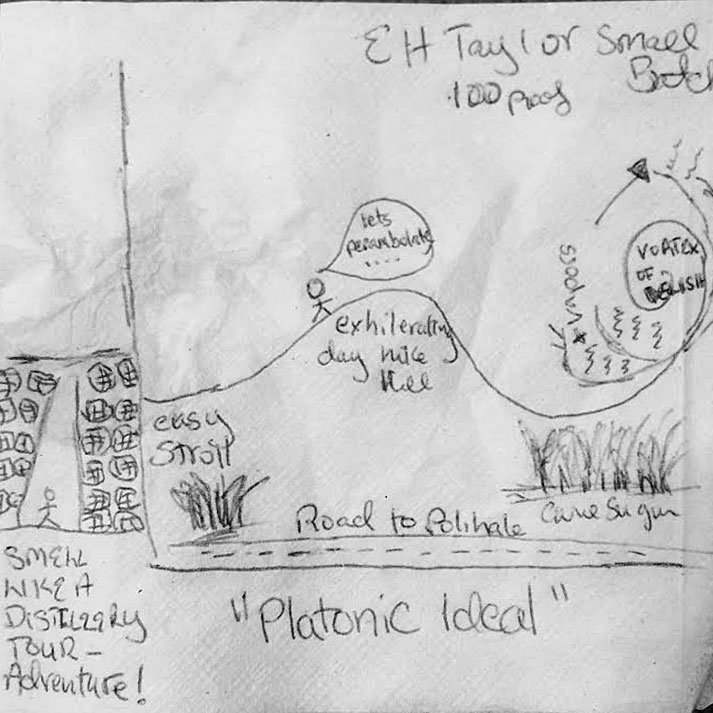 EH Taylor Small
Batch
100 Proof
lets
perambolate
....
VORTEX
OF
RELISH
Vapors
exhilerating
day hike
Hill
easy
Stroll
Cane Sugar
Road to Polihale
SMELL
LIKE A
DISTILLERY
TOUR -
Adventure!
"Platonic Ideal"